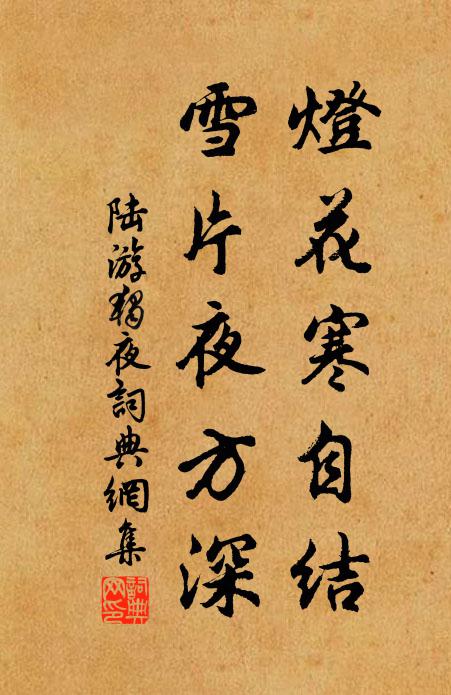 燈花寒自结
雪片夜方深
陆游獨夜詞典網集
詞典网印